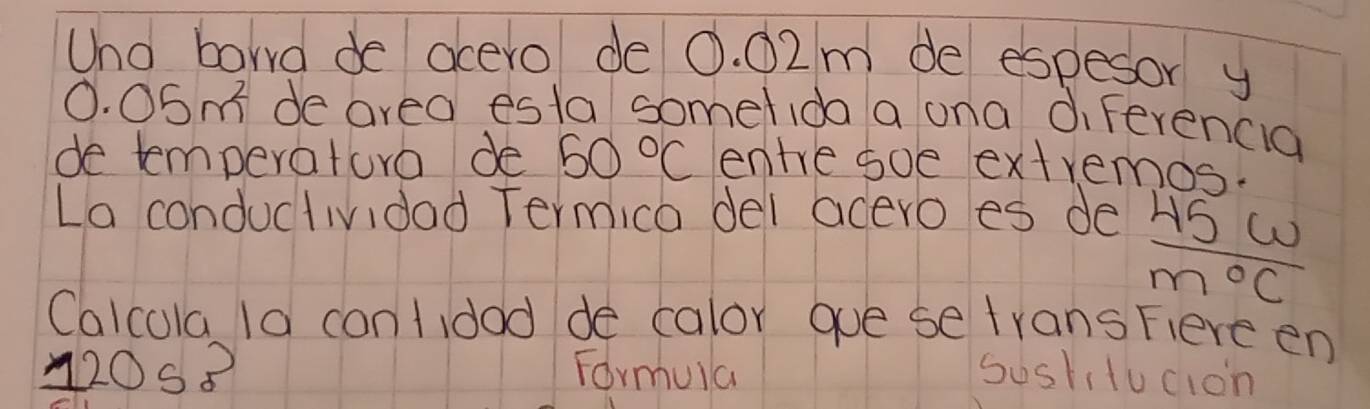 Una barra de acero de 0.02m de espesor y
0.05m² de area esta sometida a una diferencia
de temperatura de 50°C entre soe extremos.
La conductividad Termica del acero es de 45 W
m°C
Calcula la cantidad de calor que se transfiere en
120s?
Formula Sustitución